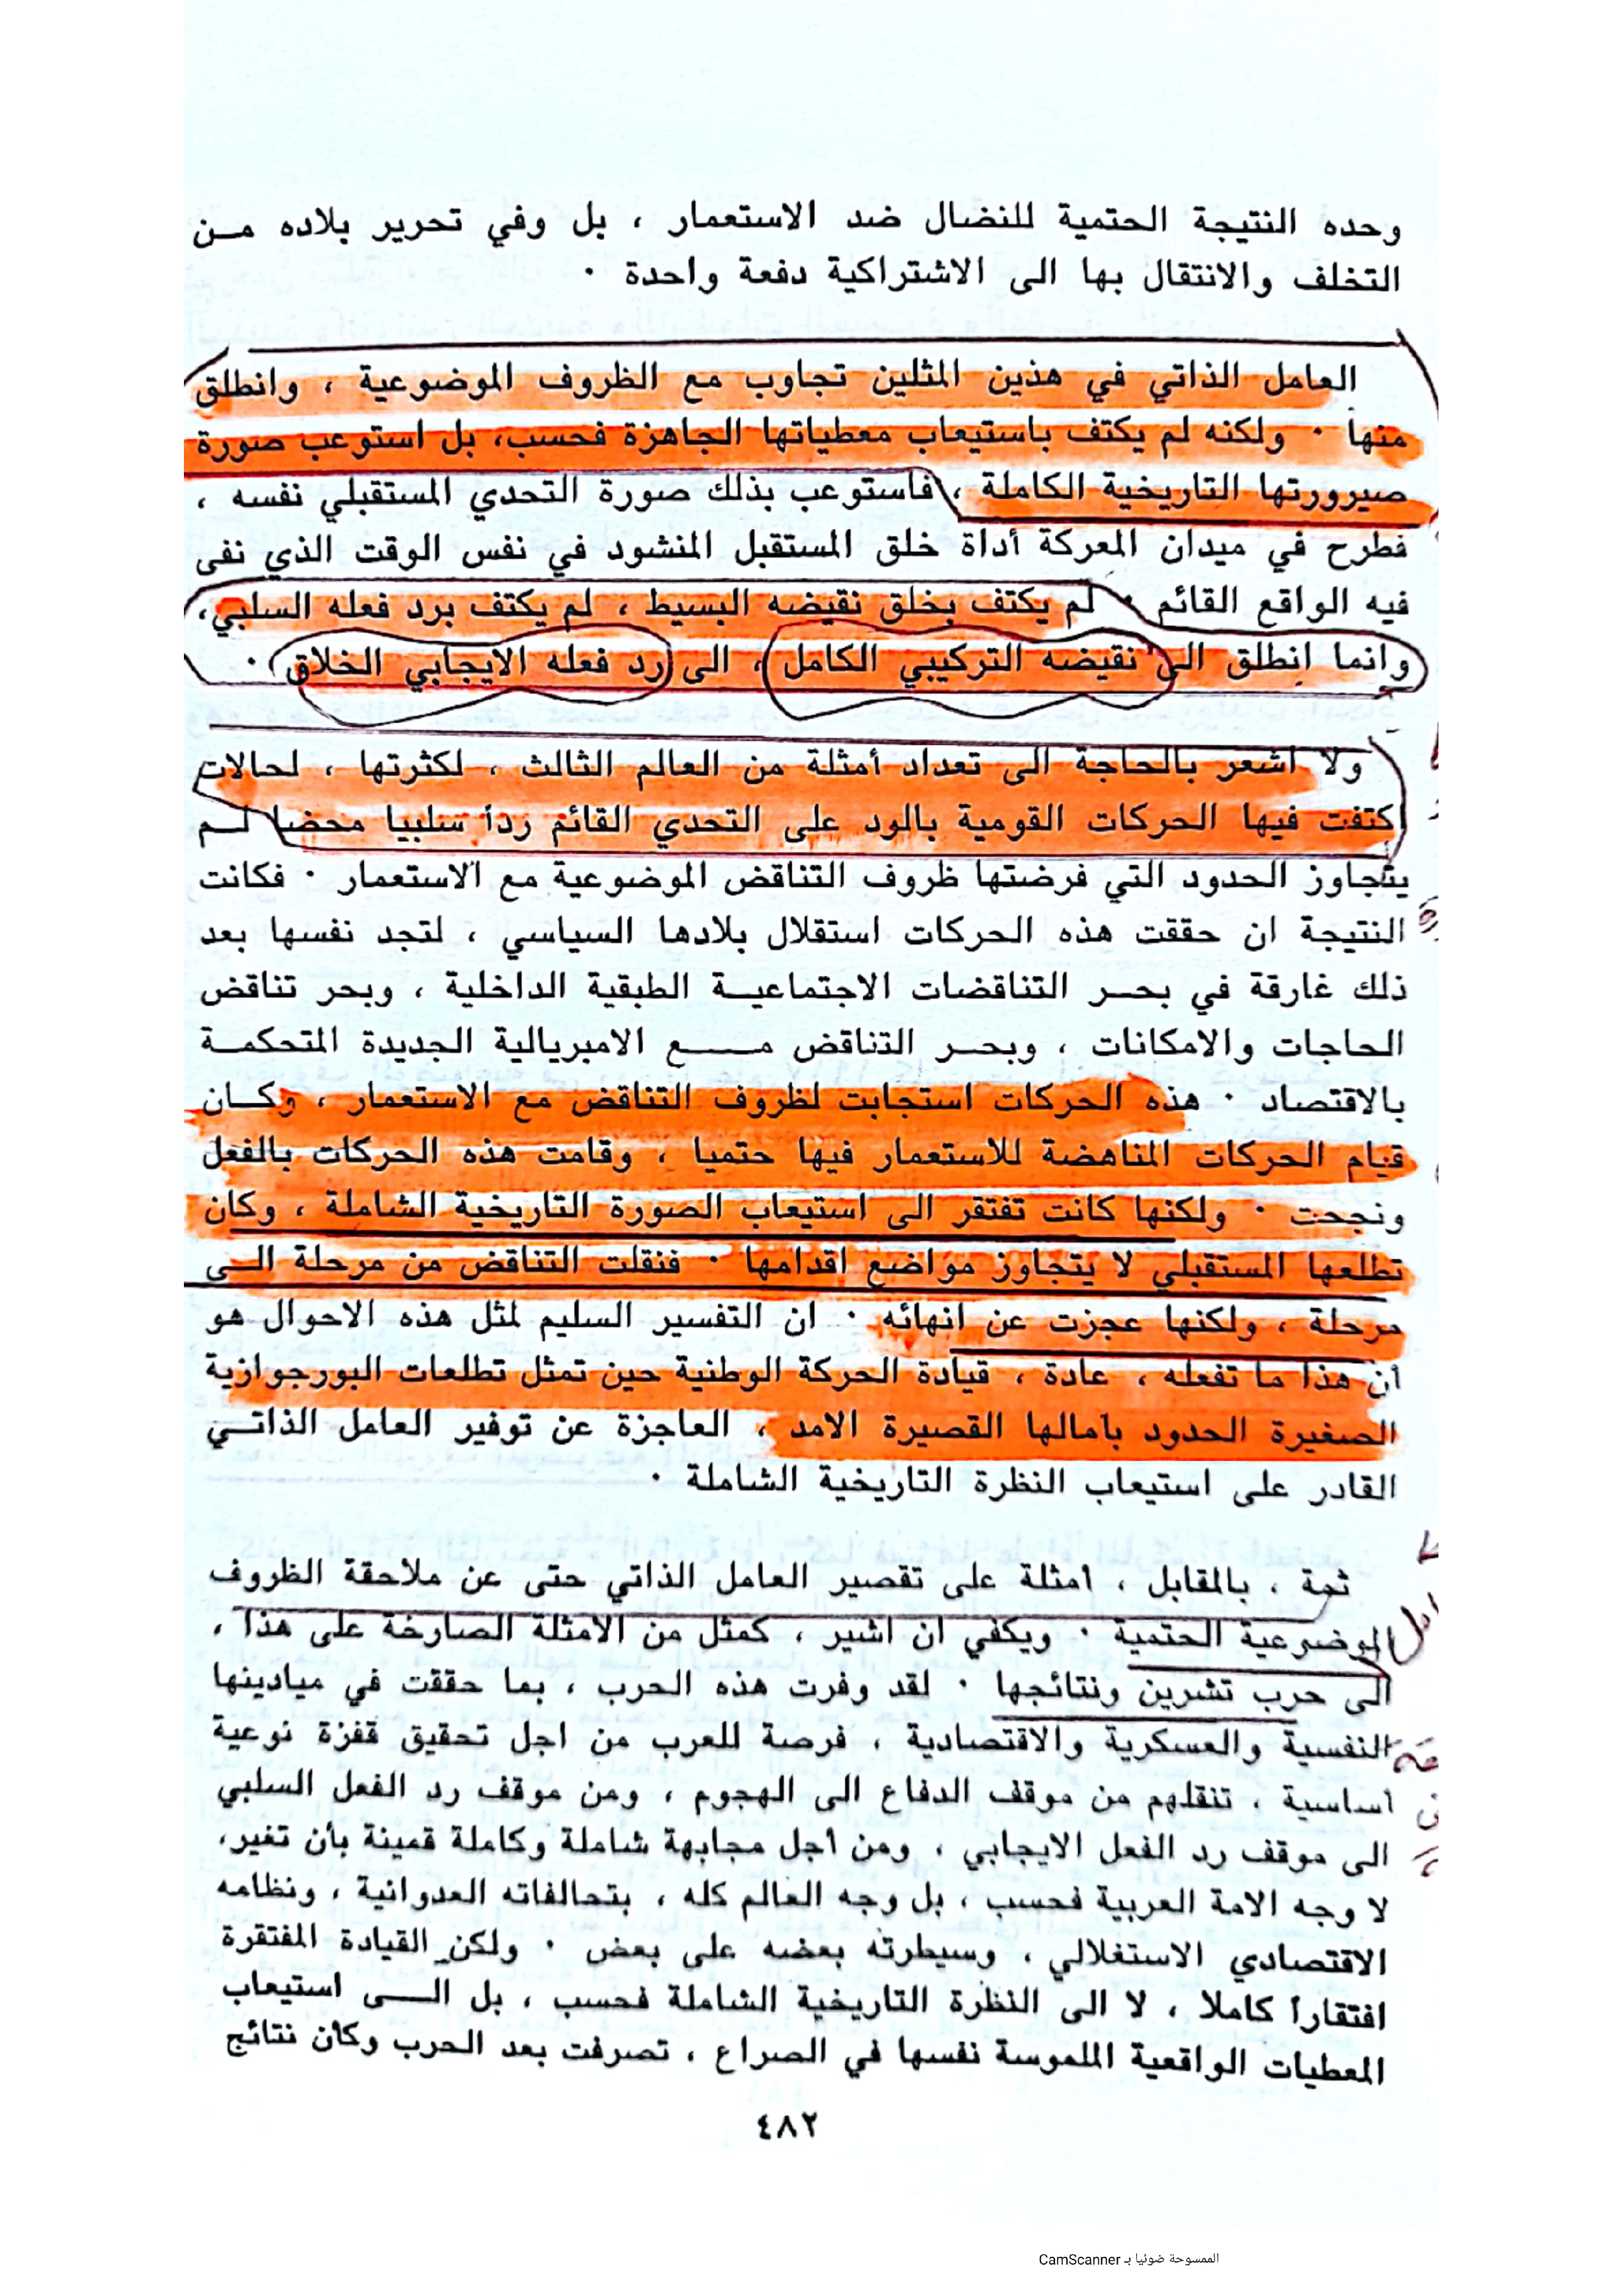 وحده النتيجة الحتمية للنضال ضد الاستعمار ، بل وفي تحرير بلاده مــن
التخلف والانتقال بها الى الاشتراكية دفعة واحدة ·
العامل الذاتي في هذين المثلين تجاوب مع الظروف الموضوعية ، وانطلق
منها · ولكنه لم يكتف باستيعاب معطياتها الجاهزة فحسب، بل استوعب صورة
صيرورتها التاريخية الكاملة ، فاستوعب بذلك صورة التحدي المستقبلي نفسه ،
فطرح في ميدان المعركة أداة خلق المستقبل المنشود في نفس الوقت الذي نفى
فيه الواقع القائم · لم يكتف بخلق نقيضه البسيط ، لم يكتف برد فعله السلبي ،
وانما انطلق الى نقيضه التركيبي الكامل ، الى رد فعله الايجابي الخلاق ·
ولا اشعر بالحاجة الى تعداد أمثلة من العالم الثالث ، لكثرتها ، لحالات
اكتفت فيها الحركات القومية بالود على التحدي القائم رداً سلبيا محضا لــم
يتجاوز الحدود التي فرضتها ظروف التناقض الموضوعية مع الاستعمار · فكانت
النتيجة ان حققت هذه الحركات استقلال بلادها السياسي ، لتجد نفسها بعد
ذلك غارقة في بحــر التناقضات الاجتماعيــة الطبقية الداخلية ، وبحر تناقض
الحاجات والامكانات ، وبحــر التناقض مـــــع الامبريالية الجديدة المتحكمــة
بالاقتصاد · هذه الحركات استجابت لظروف التناقض مع الاستعمار ، وكــان
قيام الحركات المناهضة للاستعمار فيها حتميا ، وقامت هذه الحركات بالفعل
ونجحت · ولكنها كانت تفتقر الى استيعاب الصورة التاريخية الشاملة ، وكان
تطلعها المستقبلي لا يتجاوز مواضع اقدامها · فنقلت التناقض من مرحلة الــى
مرحلة ، ولكنها عجزت عن انهائه · ان التفسير السليم لمثل هذه الاحوال هو
أن هذا ما تفعله ، عادة ، قيادة الحركة الوطنية حين تمثل تطلعات البورجوازية
الصغيرة الحدود بآمالها القصيرة الامد ، العاجزة عن توفير العامل الذاتــي
القادر على استيعاب النظرة التاريخية الشاملة ·
ثمة ، بالمقابل ، امثلة على تقصير العامل الذاتي حتى عن ملاحقة الظروف
الموضوعية الحتمية · ويكفي ان اشير ، كمثل من الامثلة الصارخة على هذا ،
الى حرب تشرين ونتائجها · لقد وفرت هذه الحرب ، بما حققت في ميادينها
النفسية والعسكرية والاقتصادية ، فرصة للعرب من اجل تحقيق قفزة نوعية
اساسية ، تنقلهم من موقف الدفاع الى الهجوم ، ومن موقف رد الفعل السلبي
الى موقف رد الفعل الايجابي ، ومن أجل مجابهة شاملة وكاملة قمينة بأن تغير،
لا وجه الامة العربية فحسب ، بل وجه العالم كله ، بتحالفاته العدوانية ، ونظامه
الاقتصادي الاستغلالي ، وسيطرته بعضه على بعض · ولكن القيادة المفتقرة
افتقاراً كاملا ، لا الى النظرة التاريخية الشاملة فحسب ، بل الـــى استيعاب
المعطيات الواقعية الملموسة نفسها في الصراع ، تصرفت بعد الحرب وكأن نتائج
٤٨٢
الممسوحة ضوئيا بـ CamScanner